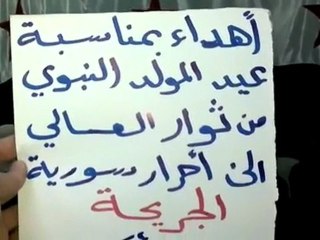 أهداء بمناسبة
عيد المولد النبوي
من ثوار العالي
الى أحرار سورية
الجريحة